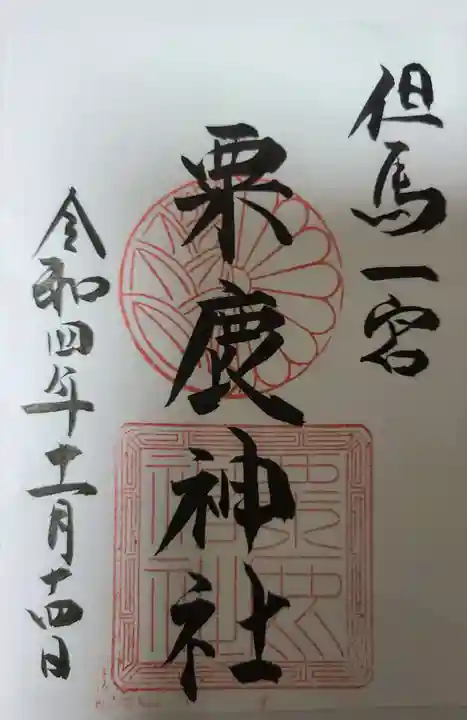 但馬一宮
粟鹿神社
令和四年十一月十四日